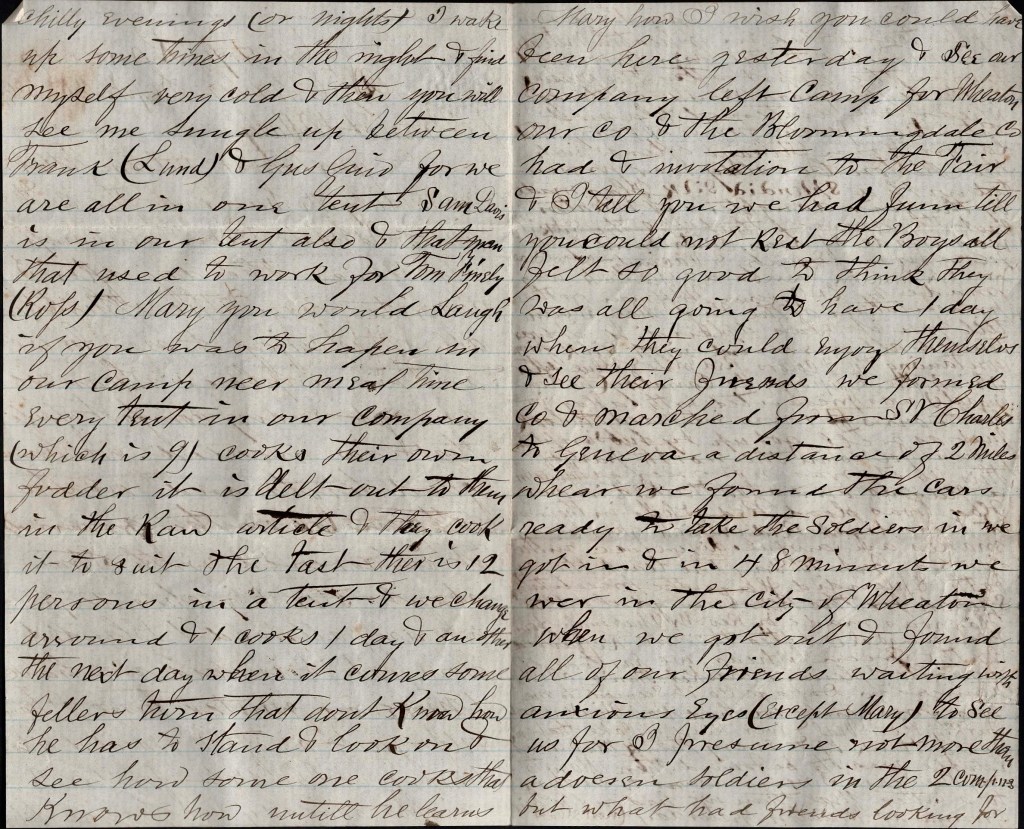 chilly evenings (or nights) I wake
up some times in the night & find
myself very cold & then you will
see me snugle up between
Frank (Lund) & Gus Guio for we
are all in one tent Sam Davis
is in our tent also & that man
that used to work for Tom
(Ross) Mary you would Laugh
if you was to hapen in
our Camp neer meal time
every tent in our company
(which is 9) cooks their own
fodder it is delt out to them
in the Raw article & they cook
it to suit the tast ther is 12
persons in a tent & we change
arround & 1 cooks 1 day & an other
the next day when it comes some
fellers turn that dont Know how
he has to stand & look on &
see how some one cooks that
Knows how untill he learns
Mary how I wish you could have
been here yesterday & see our
company left Camp for Wheaton
our Co & the Bloomingdale Co
had & invitation to the Fair
& I tell you we had funn till
you could not Rest the Boys all
felt so good to think they
was all going to have 1 day
when they could enjoy themselvs
& see their friends we formed
Co & marched from St Charles
to Geneva a distance of 2 Miles
whear we found the cars
ready to take the soldiers in we
got in & in 48 minuts we
wer in the City of Wheaton
when we got out & found
all of our friends waiting with
anxious Eyes (Except Mary) to see
us for I presume not more than
a doesen soldiers in the 2 companies
but what had friends looking for